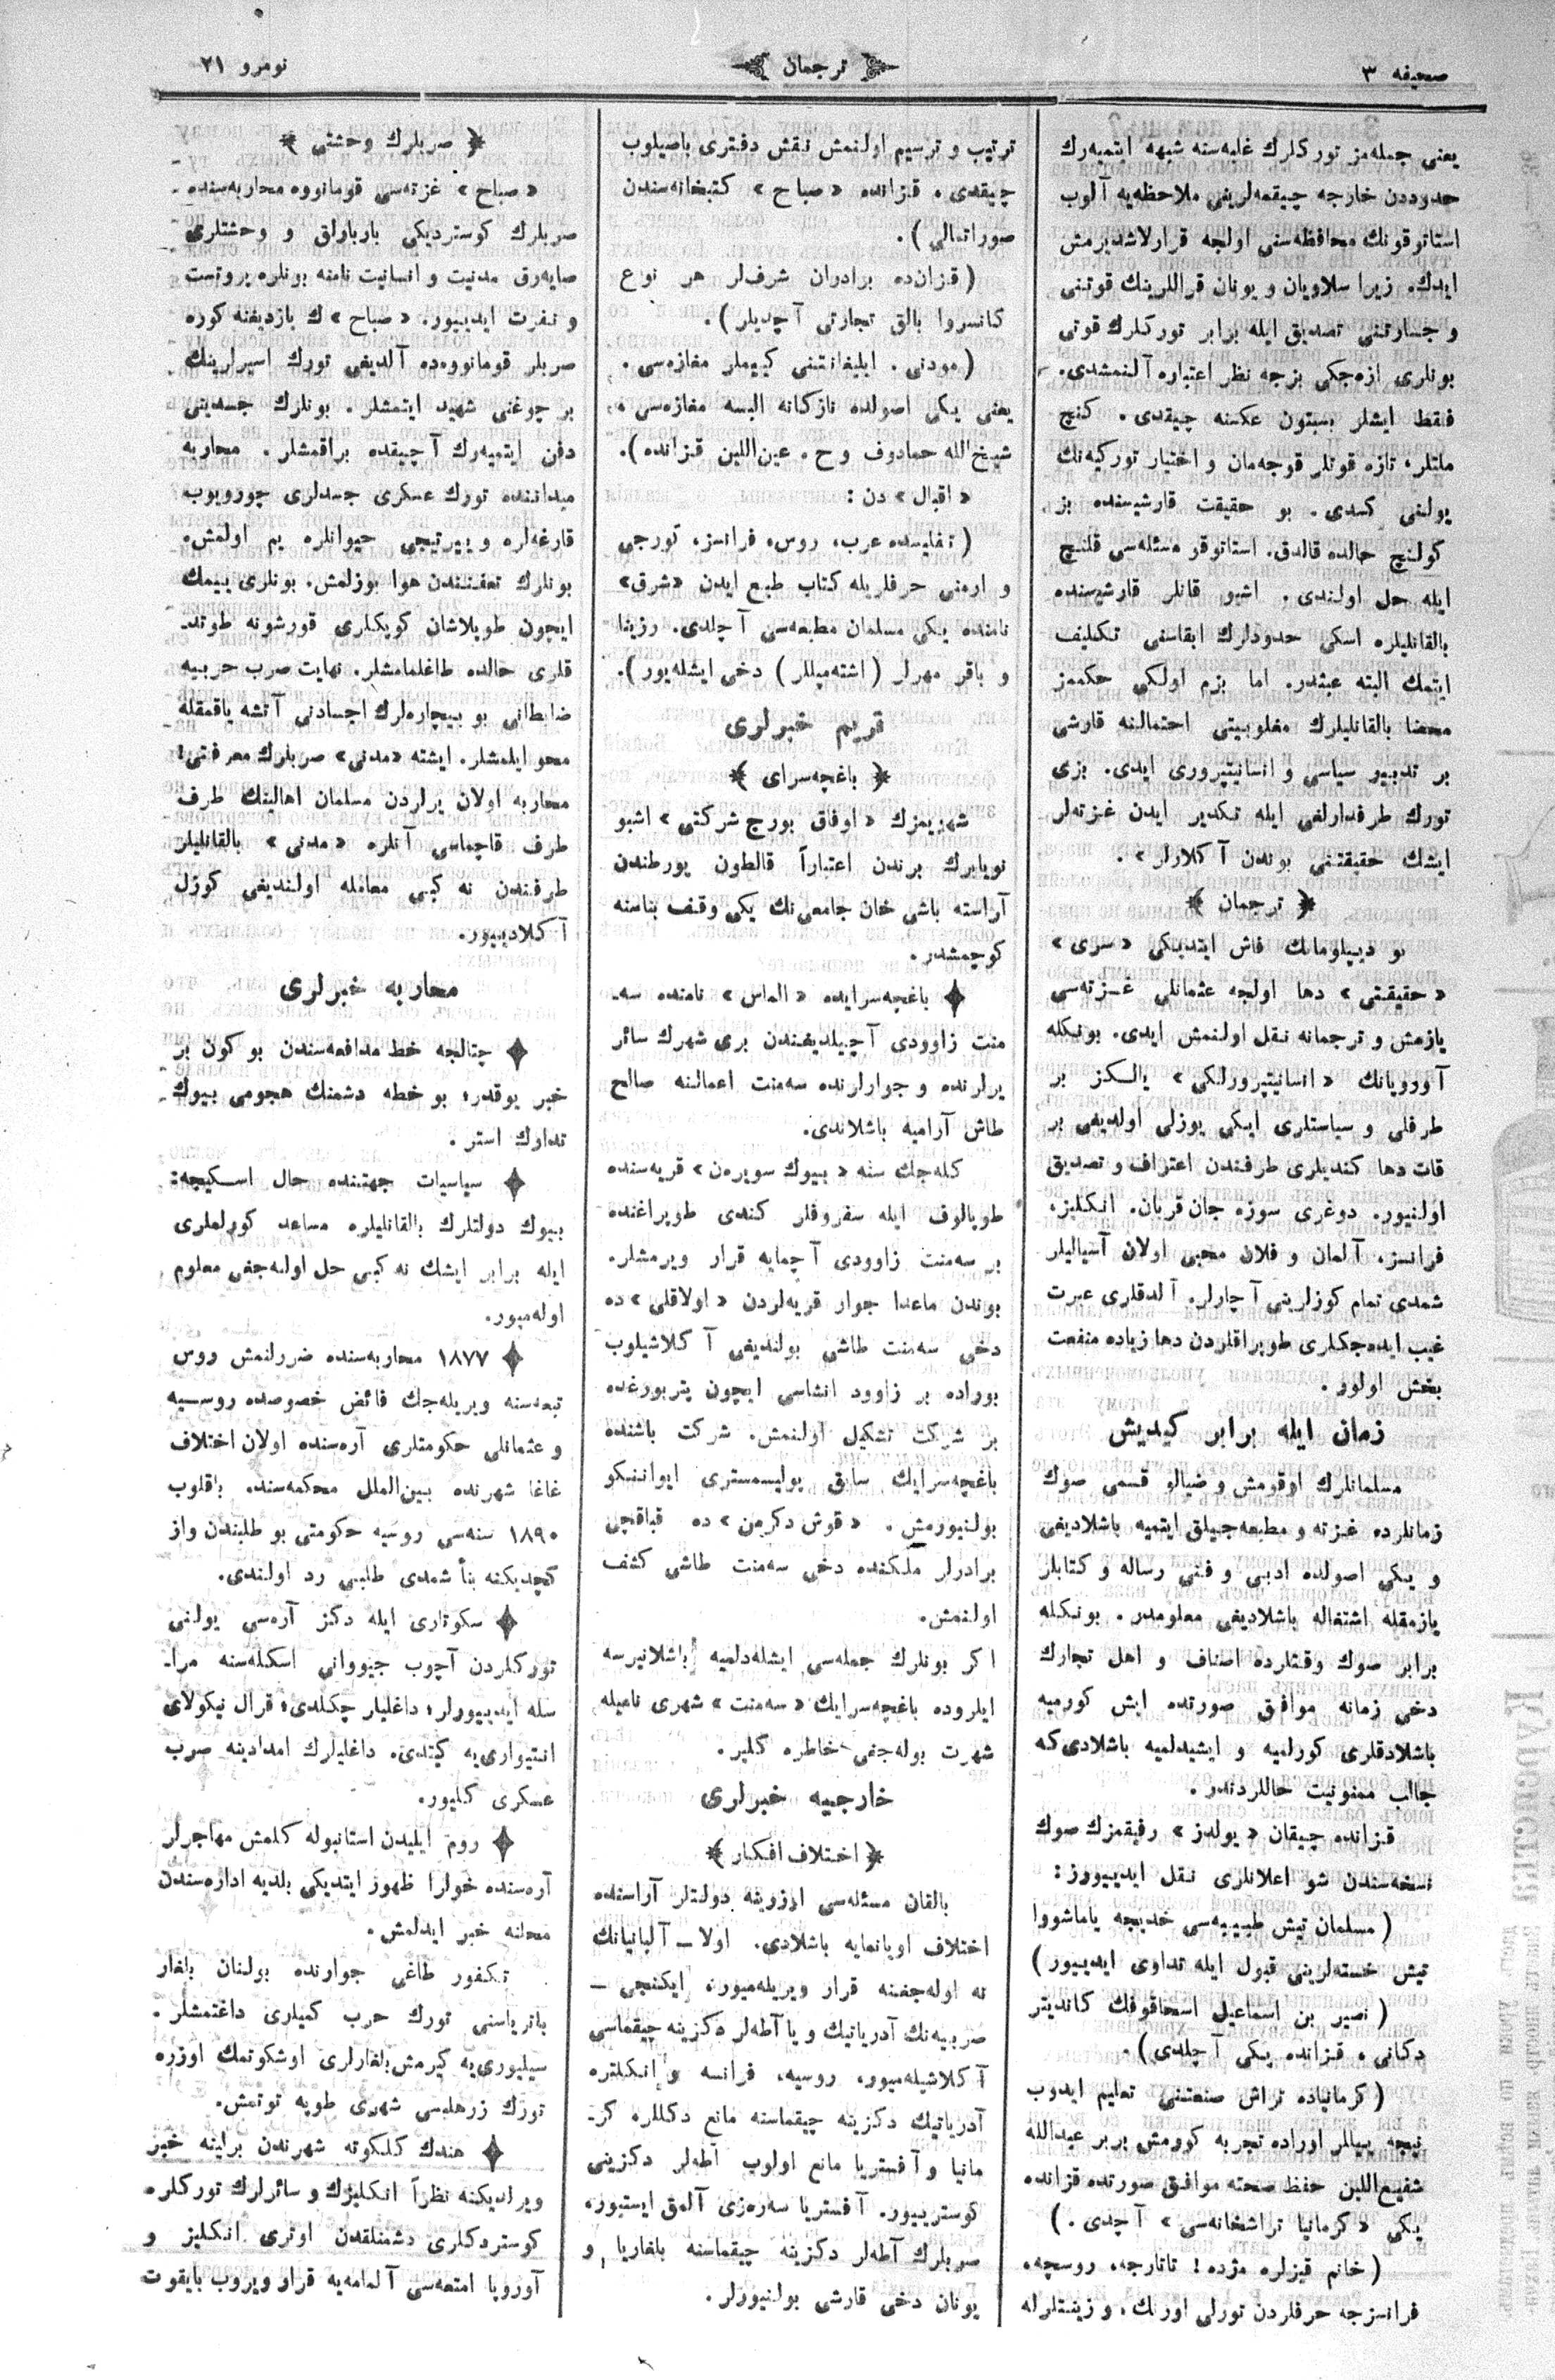 صحیفه ٣
ترجمان
نومرو ٢١
یعنی جمله‌مز تورکلرك غلبه‌سنه شبهه ایتمیه‌رك
حدوددن خارجه چیقمه‌لرینی ملاحظه‌یه آلوب
استاتوقونك محافظه‌سنی اولجه قرارلاشدیرمش
ایدك. زیرا سلاویان و یونان قراللرینك قوتنی
و جسارتنی تصدیق ایله برابر تورکلرك قوتی
بونلری ازه‌جکی بزجه نظر اعتباره آلنمشدی.
فقط ایشلر بسبتون عکسنه چیقدی. کنج
ملتلر، تازه قوتلر قوجه‌مان و اختیار تورکیه‌نك
یولنی کسدی. بو حقیقت قارشیسنده بز
کولنج حالده قالدق. استاتوقو مسئله‌سی قلنج
ایله حل اولندی. اشبو قانلر قارشیسنده
بالقانلیلره اسکی حدودلرك ابقاسنی تکلیف
ایتمك البته عبثدر. اما بزم اولکی حکممز
محضا بالقانلیلرك مغلوبیتی احتمالنه قارشی
بر تدبیر سیاسی و انسانیتپروری ایدی. بزی
تورك طرفدارلغی ایله تکدیر ایدن غزته‌لر
ایشك حقیقتنی بوندن آکلارلر» .
﴿ ترجمان ﴾
بو دیپلوماتك فاش ایتدیکی «سری»
«حقیقتی» دها اولجه عثمانلی غزته‌سی
یازمش و ترجمانه نقل اولنمش ایدی. بونکله
آوروپانك «انسانیتپرورلکی» یالکز بر
طرفلی و سیاستلری ایکی یوزلی اولدیغی بر
قات دها کندیلری طرفندن اعتراف و تصدیق
اولنیور. دوغری سوزه جان قربان. انکلیز،
فرانسز، آلمان و فلان محبی اولان آسیالیلر
شمدی تمام کوزلرینی آچارلر. آلدقلری عبرت
غیب ایده‌جکلری طوپراقلردن دها زیاده منفعت
بخش اولور .
زمان ایله برابر کیدیش
مسلمانلرك اوقومش و ضیالو قسمی صوك
زمانلرده غزته و مطبعه‌جیلق ایتمیه باشلادیغی
و یکی اصولده ادبی و فنی رساله و کتابلر
یازمقله اشتغاله باشلادیغی معلومدر. بونکله
برابر صوك وقتلرده اصناف و اهل تجارك
دخی زمانه موافق صورتده ایش کورمیه
باشلادقلری کورلمیه و ایشیدلمیه باشلادی‌که
جالب ممنونیت حاللردندر.
قزانده چیقان «یولدز» رفیقمزك صوك
نسخه‌سندن شو اعلانلری نقل ایدییورز:
(مسلمان تیش طبیبه‌سی خدیجه یاماشووا
تیش خسته‌لرینی قبول ایله تداوی ایدییور)
(نصیر بن اسماعیل اسحاقوفك کاندیتر
دکانی، قزانده یکی آچلدی).
(کرمانیاده تراش صنعتنی تعلیم ایدوب
نیچه ییللر اوراده تجربه کورمش بربر عبدالله
شفیع‌اللین حفظ صحته موافق صورتده قزانده
یکی «کرمانیا تراشخانه‌سی» آچدی.)
(خانم قیزلره مژده! تاتارجه، روسچه،
فرانسزجه حرفلردن تورلی اورنك، و زینتلرله
ترتیب و ترسیم اولنمش نقش دفتری باصیلوب
چیقدی. قزانده «صباح» کتبخانه‌سندن
صوراتمالی).
(قزان‌ده برادران شرف‌لر هر نوع
کانسروا بالق تجارتی آچدیلر).
(مودنی. ایلیغانتنی کییملر مغازه‌سی.
یعنی یکی اصولده نازکانه البسه مغازه‌سی،
شیخ‌الله حمادوف و ح. عین‌اللین قزانده).
«اقبال» دن:
(تفلیسده عرب، روس، فرانسز، تورجی
و ارمنی حرفلریله کتاب طبع ایدن «شرق»
نامنده یکی مسلمان مطبعه‌سی آچلدی. رزینا
و باقر مهرلر (اشته‌مپللر) دخی ایشله‌یور).
قریم خبرلری
﴿ باغچه‌سرای ﴾
شهریمزك «اوفاق بورج شرکتی» اشبو
نویابرك برندن اعتباراً قالطون یورطندن
آراسته باشی خان جامعی‌نك یکی وقف بناسنه
کوچمشدر.
باغچه‌سرایده «الماس» نامنده سه‌ـ
منت زاوودی آچیلدیغندن بری شهرك سائر
یرلرنده و جوارلرنده سه‌منت اعمالنه صالح
طاش آرامیه باشلاندی.
کله‌جك سنه «بیوك سویره‌ن» قریه‌سنده
طوپالوف ایله سفروفلر کندی طوپراغنده
بر سه‌منت زاوودی آچمایه قرار ویرمشلر.
بوندن ماعدا جوار قریه‌لردن «اولاقلی»ده
دخی سه‌منت طاشی بولندیغی آکلاشیلوب
بوراده بر زاوود انشاسی ایچون پتربورغده
بر شرکت تشکیل اولنمش. شرکت باشنده
باغچه‌سرایك سابق پولیسمستری ایوانینکو
بولنیورمش. «قوش دکرمن»ده قباقچی
برادرلر ملکنده دخی سه‌منت طاشی کشف
اولنمش.
اکر بونلرك جمله‌سی ایشله‌دلمیه باشلانیرسه
ایلروده باغچه‌سرایك «سه‌منت» شهری نامیله
شهرت بوله‌جغی خاطره کلیر.
خارجیه خبرلری
﴿ اختلاف افکار ﴾
بالقان مسئله‌سی اوزرینه دولتلر آراسنده
اختلاف اویانمایه باشلادی. اولا ــ آلبانیانك
نه اوله‌جغنه قرار ویریله‌میور، ایکنجی ــ
صربیه‌نك آدریاتیك و یا آطه‌لر دکزینه چیقماسی
آکلاشیله‌میور، روسیه، فرانسه و انکلتره
آدریاتیك دکزینه چیقماسنه مانع دکللره کرـ
مانیا و آفستریا مانع اولوب آطه‌لر دکزینی
کوسترییور. آفستریا سه‌ره‌زی آلمق ایستیور،
صربلرك آطه‌لر دکزینه چیقماسنه بلغاریا و
یونان دخی قارشی بولنیورلر.
﴿ صربلرك وحشتی ﴾
«صباح» غزته‌سی قومانووه محاربه‌سنده
صربلرك کوستردیکی باربارلق و وحشتلری
صایه‌رق مدنیت و انسانیت نامنه بونلره پروتست
و نفرت ایدییور. «صباح»ك یازدیغنه کوره
صربلر قومانووه‌ده آلدیغی تورك اسیرلرینك
بر چوغنی شهید ایتمشلر. بونلرك جسدینی
دفن ایتمیه‌رك آچیقده براقمشلر. محاربه
میداننده تورك عسکری جسدلری چوروyوب
قارغه‌لره و ییرتیجی حیوانلره یم اولمش.
بونلرك تعفنندن هوا بوزلمش. بونلری ییمك
ایچون طوپلاشان کوپکلری قورشونه طوتدـ
قلری حالده طاغلمامشلر. نهایت صرب حربیه
ضابطانی بو بیچاره‌لرك اجسادنی آتشه یاقمقله
محو ایلمشلر. ایشته «مدنی» صربلرك معرفتی!
محاربه اولان یرلردن مسلمان اهالینك طرف
طرف قاچماسی آنلره «مدنی» بالقانلیلر
طرفندن نه کبی معامله اولندیغی کوزل
آکلادییور.
محاربه خبرلری
چتالجه خط مدافعه‌سندن بو کون بر
خبر یوقدر؛ بو خطه دشمنك هجومی بیوك
تدارك استر.
سیاسیات جهتنده حال اسکیچه:
بیوك دولتلرك بالقانلیلره مساعد کورلملری
ایله برابر ایشك نه کبی حل اوله‌جغی معلوم
اوله‌میور.
١٨٧٧ محاربه‌سنده ضررلنمش روس
تبعه‌سنه ویریله‌جك فائض خصوصده روسیه
و عثمانلی حکومتلری آره‌سنده اولان اختلاف
غاغا شهرنده بین‌الملل محکمه‌سنده باقلوب
١٨٩٠ سنه‌سی روسیه حکومتی بو طلبندن واز
کچدیکنه بناً شمدی طلبی رد اولندی.
سکوتاری ایله دکز آره‌سی یولنی
تورکلردن آچوب جیووانی اسکله‌سنه مراـ
سله ایدییورلر؛ داغلیلر چکلدی؛ قرال نیکولای
انتیواری‌یه کیتدی. داغلیلرك امدادینه صرب
عسکری کلیور.
روم ایلیدن استانبوله کلمش مهاجرلر
آره‌سنده خولرا ظهور ایتدیکی بلدیه اداره‌سندن
محلنه خبر ایدلمش.
تکفور طاغی جوارنده بولنان بلغار
باتریاسنی تورك حرب کمیلری داغتمشلر.
سیلیوری‌یه کیرمش بلغارلری اوشکوتمك اوزره
تورك زرهلیسی شهری طوپه توتمش.
هندك کلکوته شهرندن برلینه خبر
ویرلدیکنه نظراً انکلیزك و سائرلرك تورکلره
کوستردکلری دشمنلقدن اوتری انکلیز و
آوروپا امتعه‌سی آلمامه‌یه قرار ویروب بایقوت